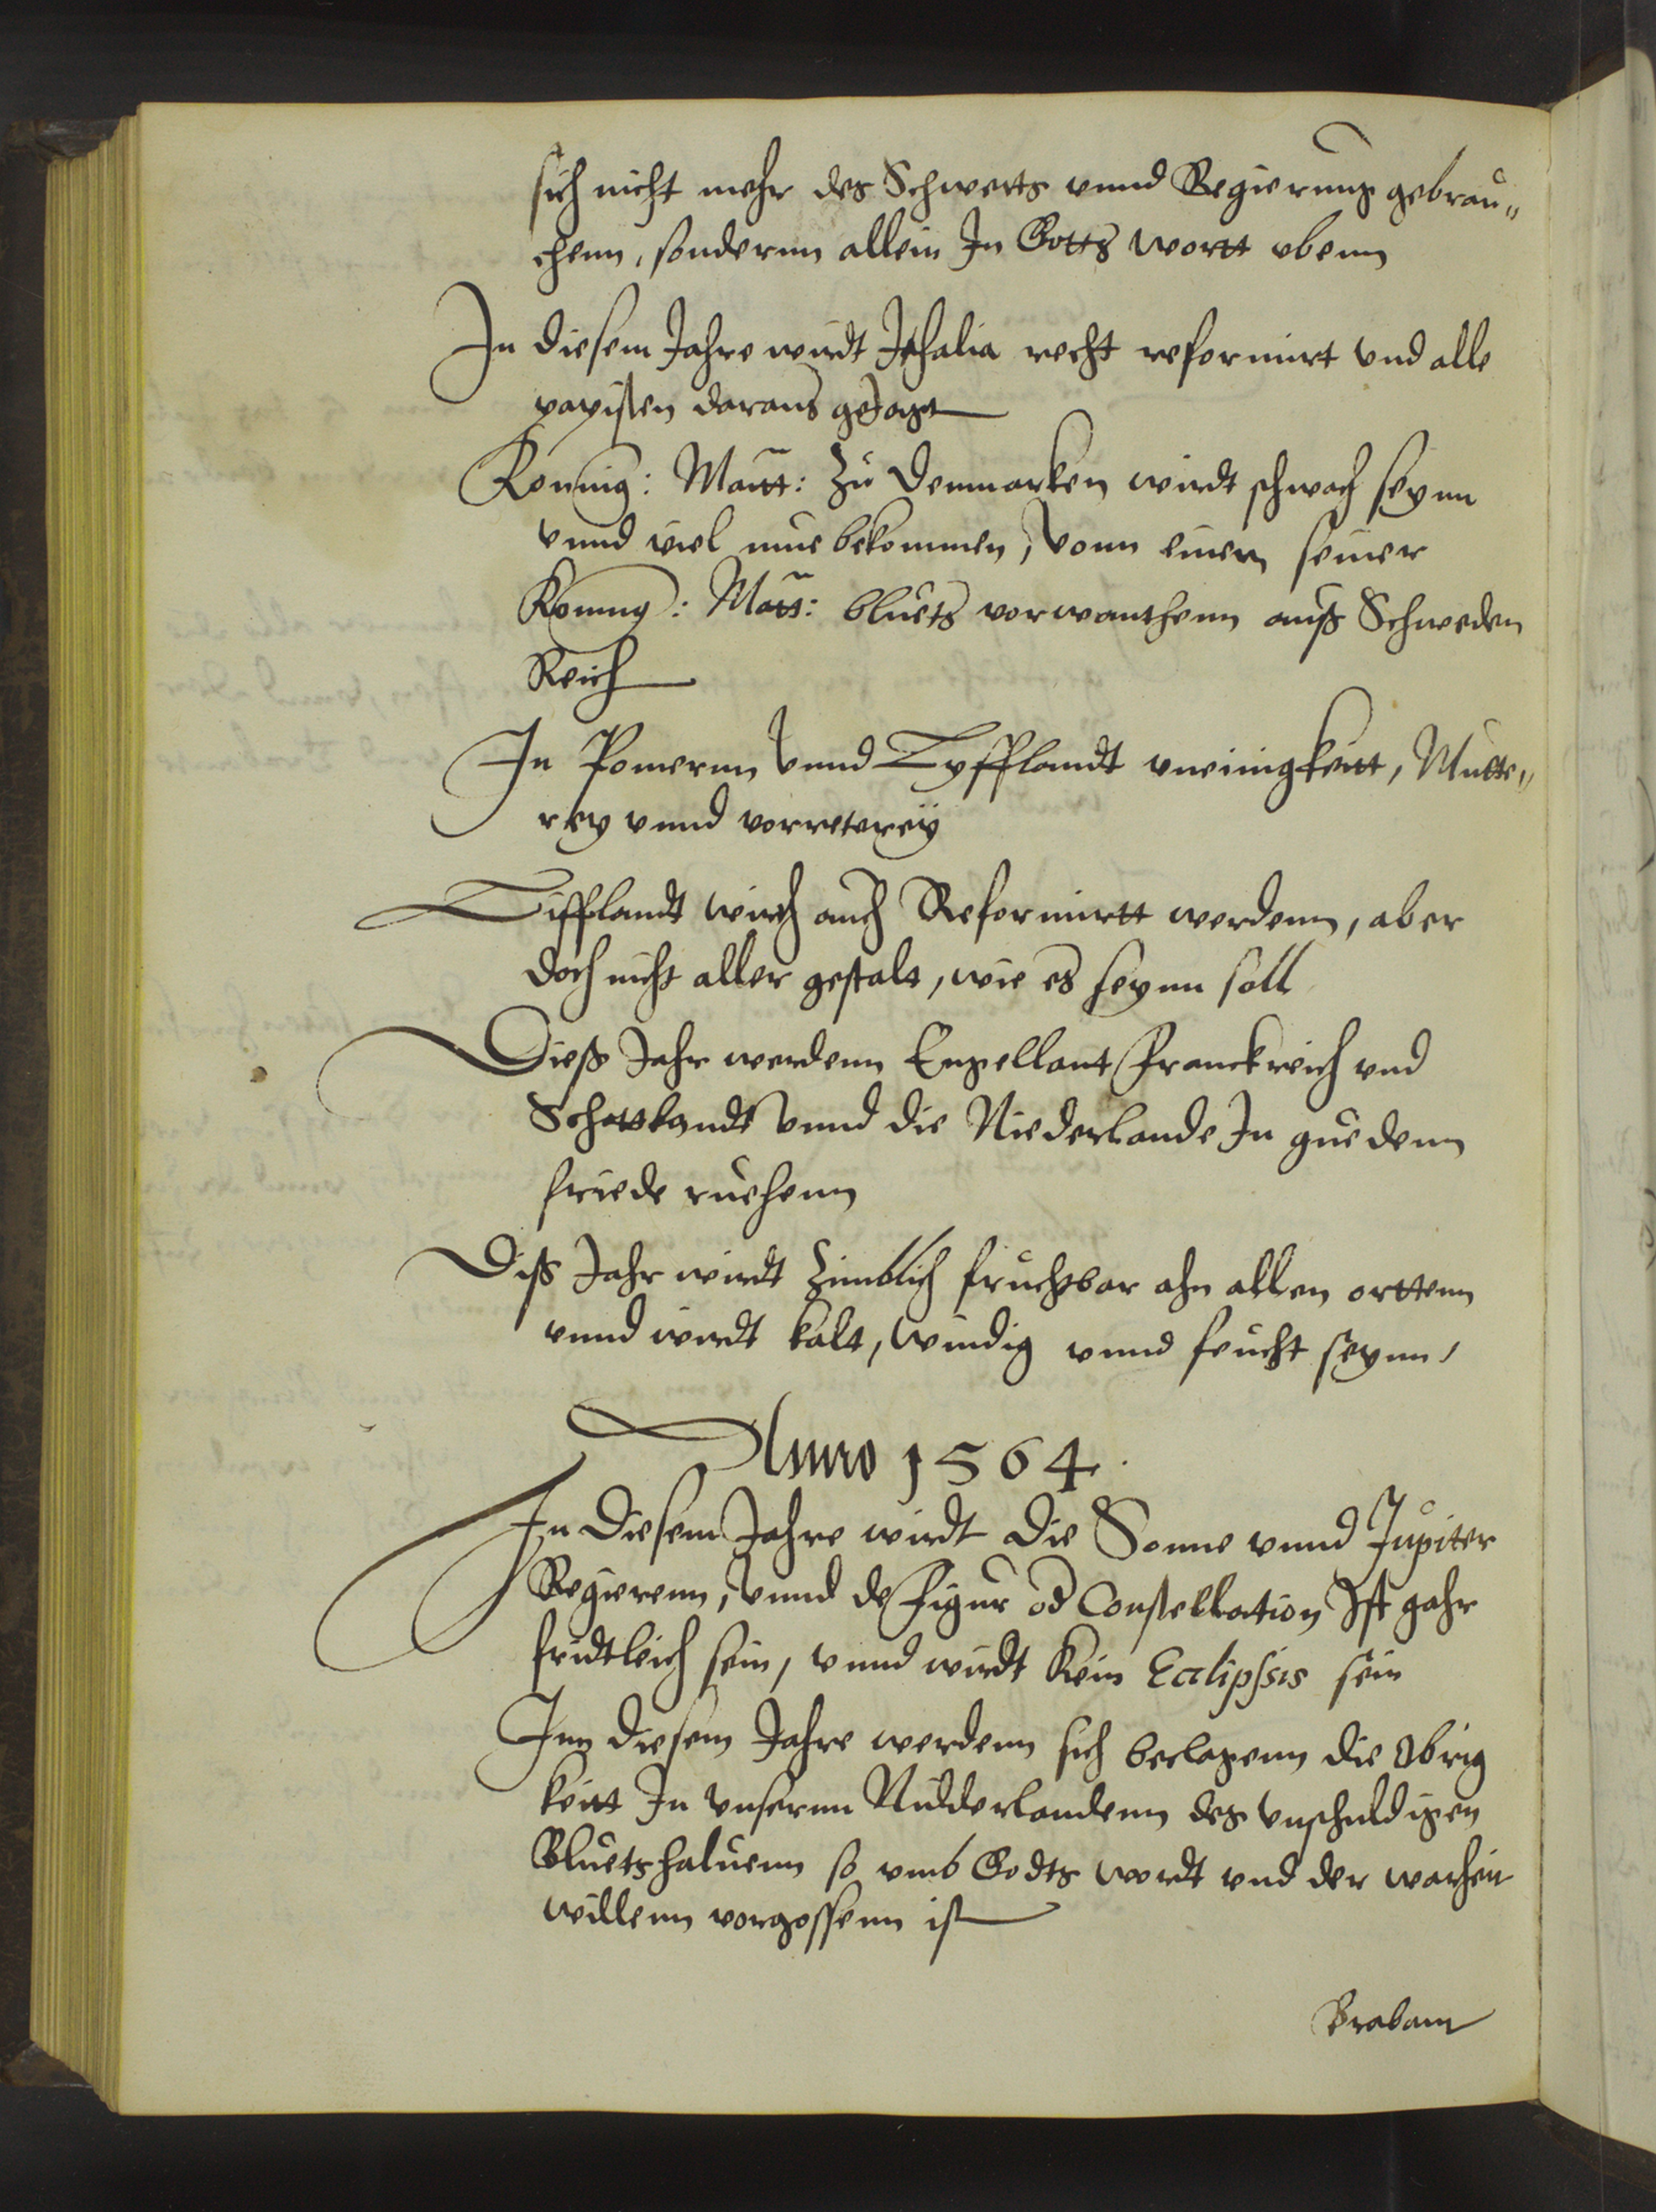 sich nicht mehr des Schwerts vnnd Regierung gebrau„
chenn, sondernn allein In Gotts wortt vbenn
In diesem Jahre wirdt Ithalia recht reformirt vnd alle
papisten daraus geJagt
Konning: Maitt: Zu Denmarken wirdt schwach seynn
vnnd viel mue bekommen, vonn einem seiner
Koning: Matt: bluets vorwanthenn auß Schweden
Reich
In Pomernn vnnd Lyfflandt vneinigkeitt, Mutte„
rey vnnd vorreterey
Lifflandt wirdt auch Reformirtt werdenn, aber
doch nicht aller gestalt, wie es seynn soll
Dieß Jahr werdenn Engellant Franckreich vnd
Schottlandt vnnd die Niederlande In guedenn
friede ruehenn
Diß Jahr wirdt Zimblich fruchtbar ahn allen orttenn
vnnd wirdt kalt, windig vnnd feucht seynn,
Anno 1564.
In diesem Jahre wirdt die Sonne vnnd Jupiter
Regierenn, vnnd de Figur od Constellation Ist gahr
fridtleich sein, vnnd wirdt kein Ecclipsis sein
Inn diesem Jahre werdenn sich beclagenn die Obrig
keitt In vnsernn Nidderlandenn des vnschuldigen
Bluetshaluenn so vmb Godts wordt vnd der warheit
willenn vorgossenn ist
Brabant